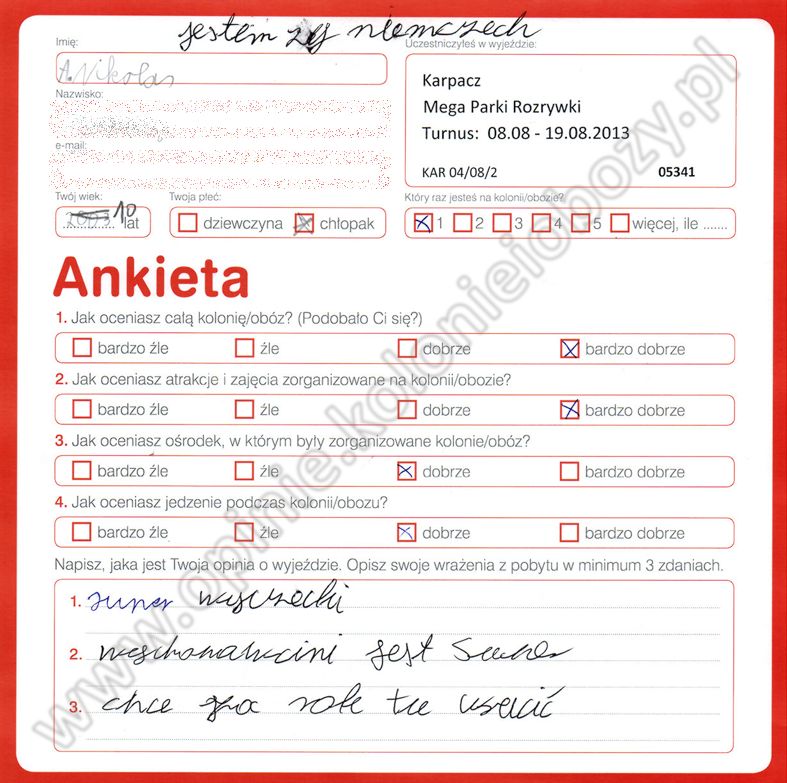 jestem z niemczech
Imię: Uczestniczyłeś w wyjeździe:
A. Nikolas
Karpacz
Mega Parki Rozrywki
Turnus: 08.08 - 19.08.2013
KAR 04/08/2 05341
Nazwisko:
e-mail:
Twój wiek: Twoja płeć: Który raz jesteś na kolonii/obozie?
10 lat dziewczyna chłopak 1 2 3 4 5 więcej, ile .......
Ankieta
1. Jak oceniasz całą kolonię/obóz? (Podobało Ci się?)
bardzo źle źle dobrze bardzo dobrze
2. Jak oceniasz atrakcje i zajęcia zorganizowane na kolonii/obozie?
bardzo źle źle dobrze bardzo dobrze
3. Jak oceniasz ośrodek, w którym były zorganizowane kolonie/obóz?
bardzo źle źle dobrze bardzo dobrze
4. Jak oceniasz jedzenie podczas kolonii/obozu?
bardzo źle źle dobrze bardzo dobrze
Napisz, jaka jest Twoja opinia o wyjeździe. Opisz swoje wrażenia z pobytu w minimum 3 zdaniach.
1. super
2. jest
3. chce za rok tu
www.opinie.kolonieiobozy.pl